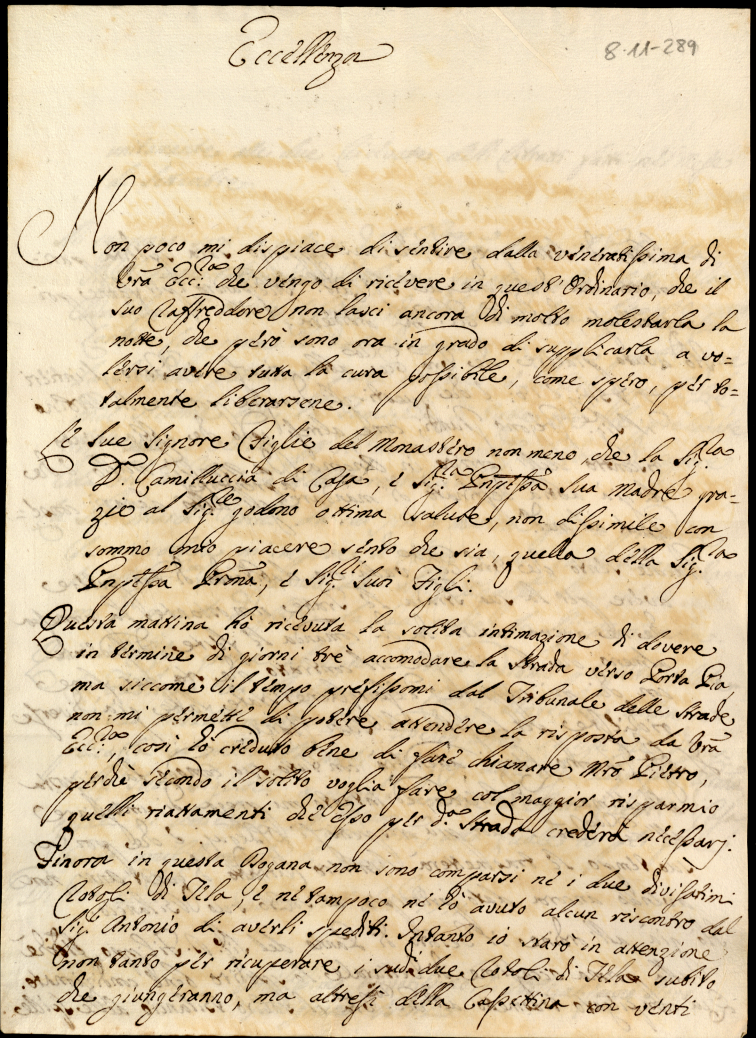 8-11-289
Eccellenza
Non poco mi dispiace di sentire dalla veneratissima di
Vrã Ecc.za che vengo di ricevere in quest'Ordinario, che il
suo Raffreddore non lasci ancora di molto molestarla la
notte, che però sono ora in grado di supplicarla a vo=
lersi avere tutta la cura possibile, come spero, per to=
talmente liberarsene.
Le Sue Signore Figlie del Monastero non meno, che la Sig.ra
D.a Camilluccia di Casa, e Sig.ra Pnpessa Sua Madre gra=
zie al Sig.re godono ottima salute, non dissimile con
sommo mio piacere sento che sia, quella della Sig.ra
Pnpessa Pronã, e Sig.ri Suoi Figli.
Questa mattina hò ricevuta la solita intimazione di dovere
in termine di giorni trè accomodare la Strada verso Porta Pia,
ma siccome il tempo prefissomi dal Tribunale delle Strade
non mi permette di potere attendere la risposta da Vrã
Ecc.za, così hò creduto bene di fare chiamare Mro Pietro,
perchè secondo il solito voglia fare col maggior risparmio
quelli riattamenti che Esso per d.a Strada crederà necessarj.
Finora in questa Dogana non sono comparsi nè i due divisatimi
Rotoli di Tela, e nè tampoco ne hò avuto alcun riscontro dal
Sig.r Antonio di averli spediti. Intanto io starò in attenzione
non tanto per ricuperare i sudi due Rotoli di Tela subito
che giungeranno, ma altresì della Cassettina con venti